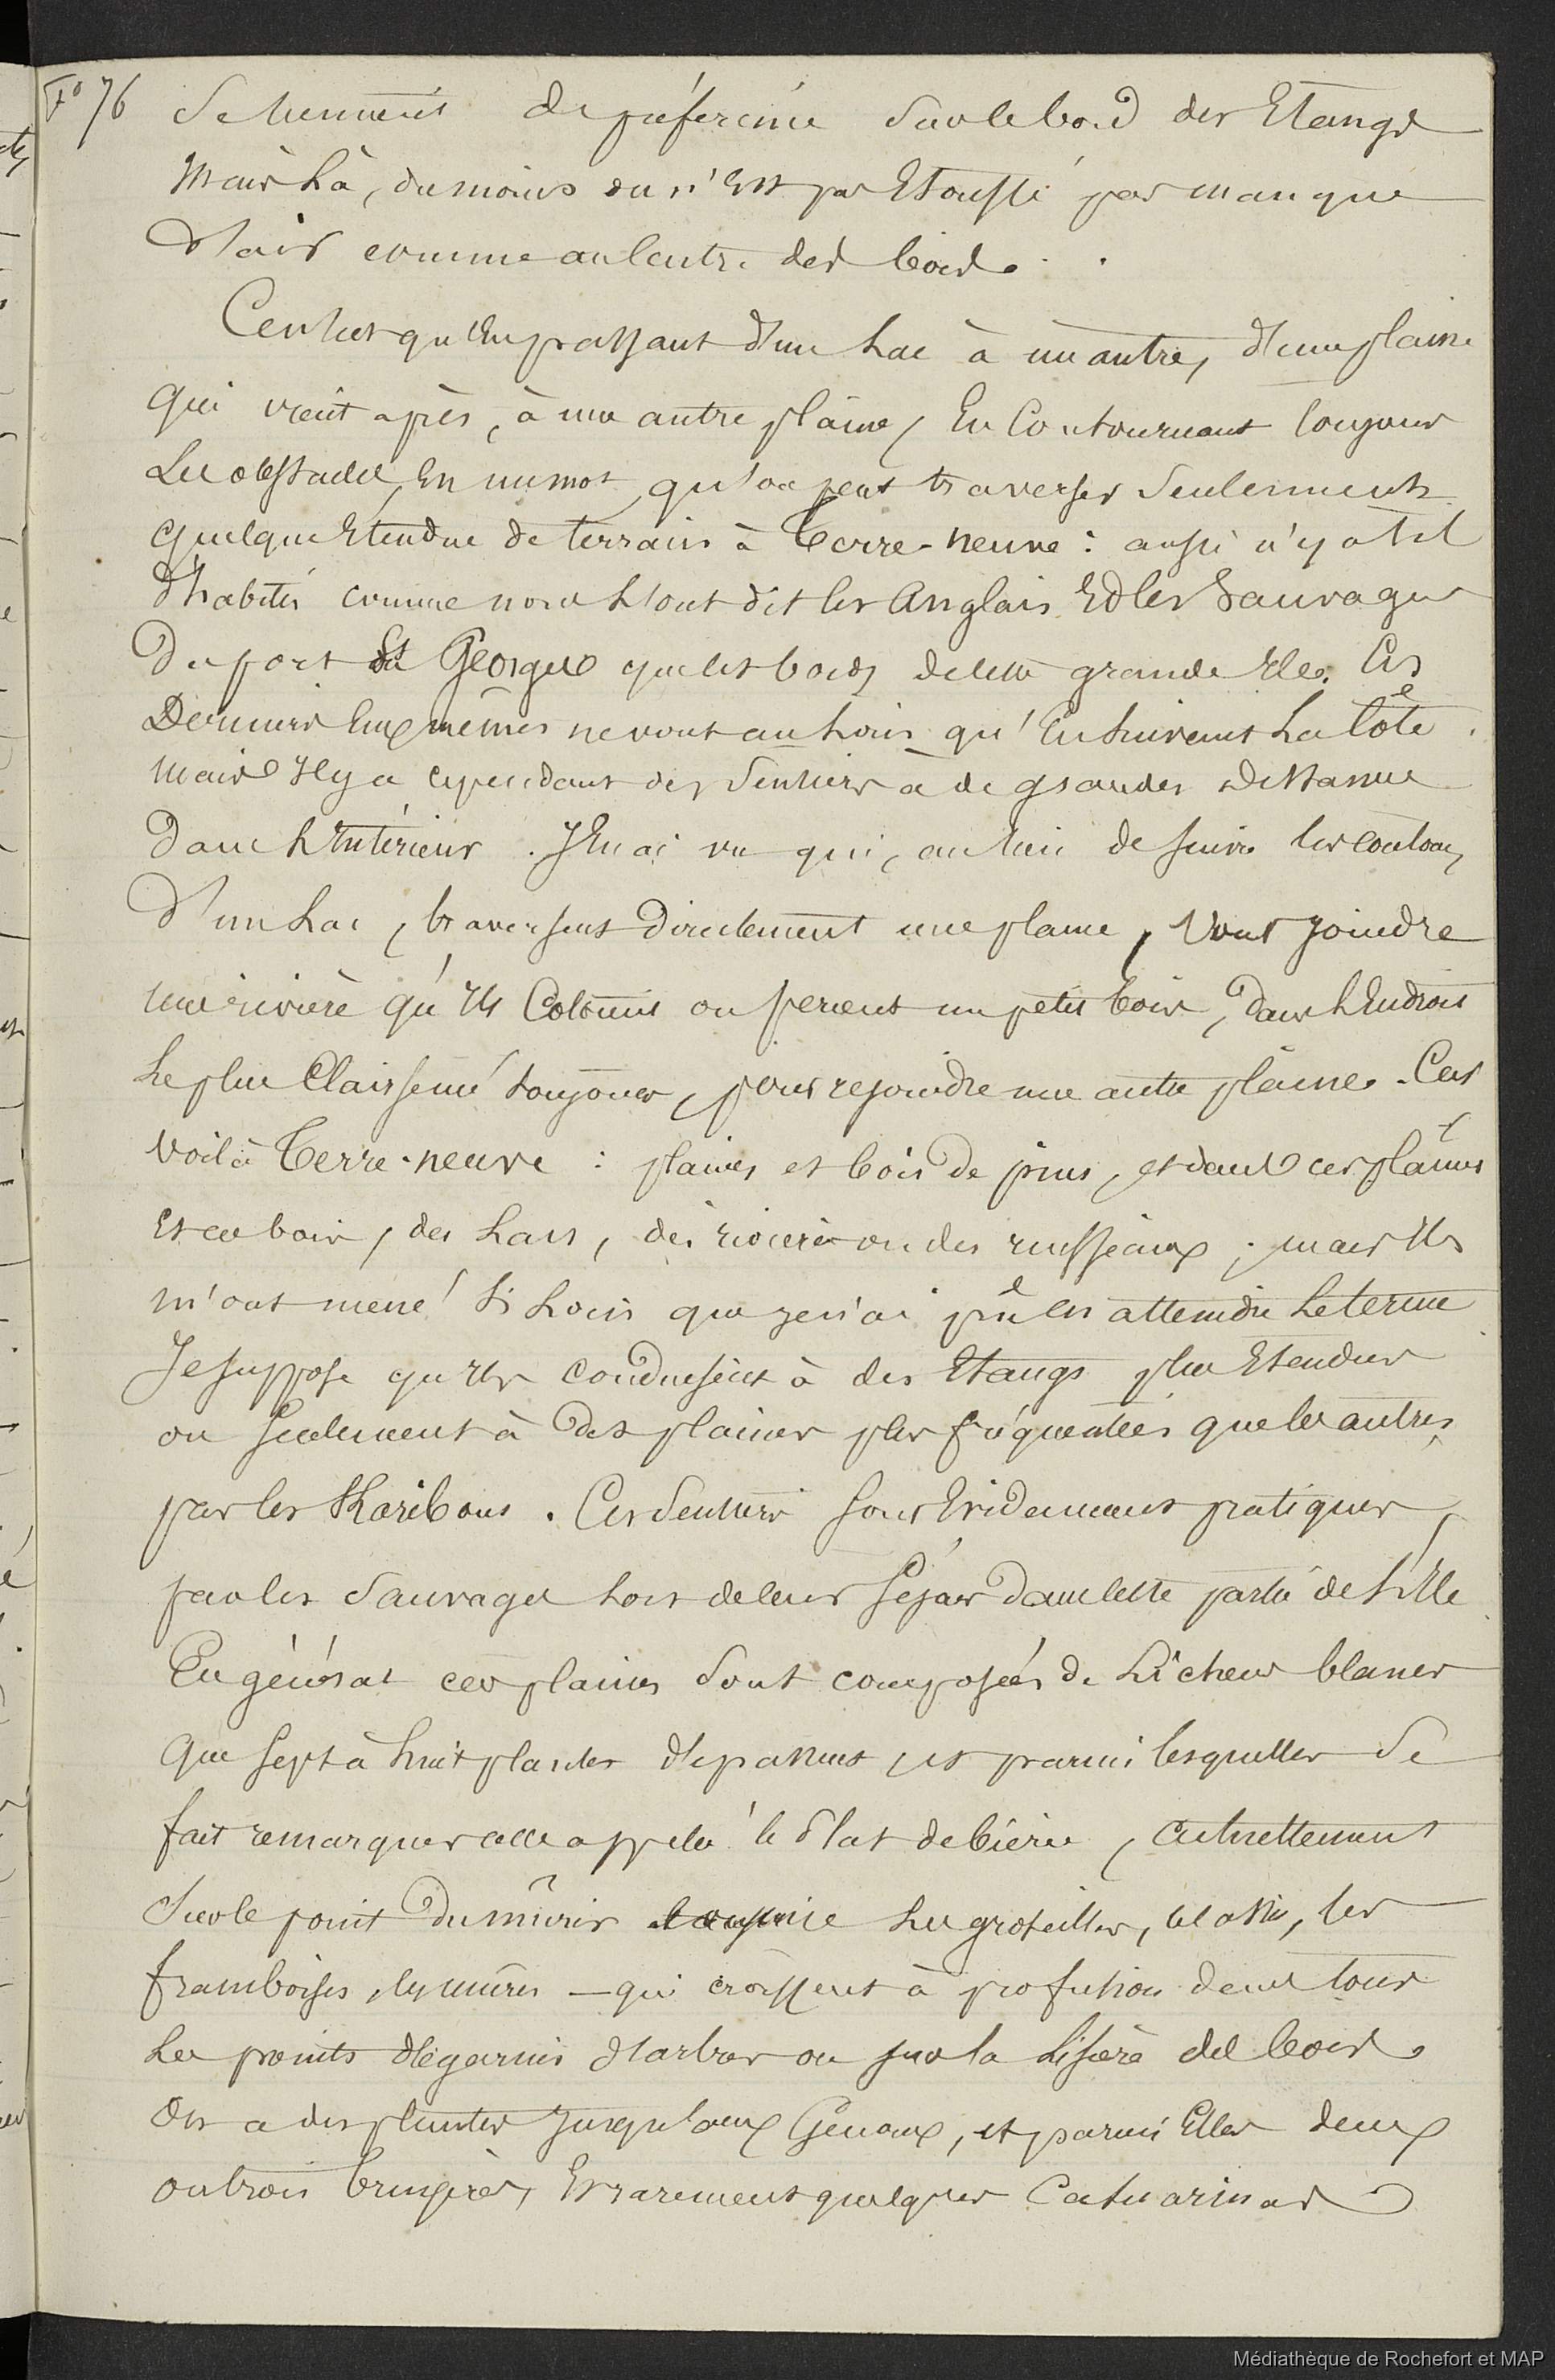 F° 76 Se tiennent de préférence sur le bord des Etangs
Mais Là, du moins on n'Est pas Etouffé par manque
d'air comme au Centre des bois.
Ce n'est qu'En passant d'un Lac à un autre, d'une plaine
qui vient après, à une autre plaine, En Contournant toujours
Les obstacles, En un mot, qu'on peut traverser Seulement
quelqu'Etendue de terrain à Terre-neuve : aussi n'y a t'il
d'habités comme nous L'ont dit les Anglais Et les Sauvages
Du port St Georges que les bords de cette grande Ile. Ces
Derniers Eux mêmes ne vont au Loin qu'En Suivant La Côte.
Mais Il y a cependant des Sentiers à de grandes distances
Dans L'Intérieur. J'En ai vu qui, au lieu de suivre les contours
D'un Lac, traversent Directement une plaine, Vont joindre
une rivière qu'Ils Cotoient ou percent un petit bois, Dans L'Endroit
Le plus Clair semé toujours, pour rejoindre une autre plaine. Car
Voilà Terre-neuve : plaines et bois De pins, et dans ces plaines
Et ces bois, des Lacs, des rivières ou des ruisseaux ; mais Ils
m'ont mené Si Loin que je n'ai pu en atteindre Le terme
Je suppose qu'Ils conduisent à des Etangs plus Etendus
ou Seulement à Des plaines plus fréquentées que les autres
par les Karibous. Ces Sentiers sont Evidemment pratiqués
par les Sauvages Lors de leur Séjour Dans cette partie de L'Ile
En général ces plaines Sont composées de Lichens blancs
Que sept à huit plantes dépassent, et parmi lesquelles Se
fait remarquer celle appelée le Plat de bière, actuellement
Sur le point De mûrir Les groseilles, les
framboises, les mûres — qui croissent à profusion dans tous
Les points dégarnis d'arbres ou sur la Lisière des bois.
On a des plantes jusqu'aux Genoux, et parmi Elles deux
ou trois bruyères, Et rarement quelques Casuarinas
Médiathèque de Rochefort et MAP